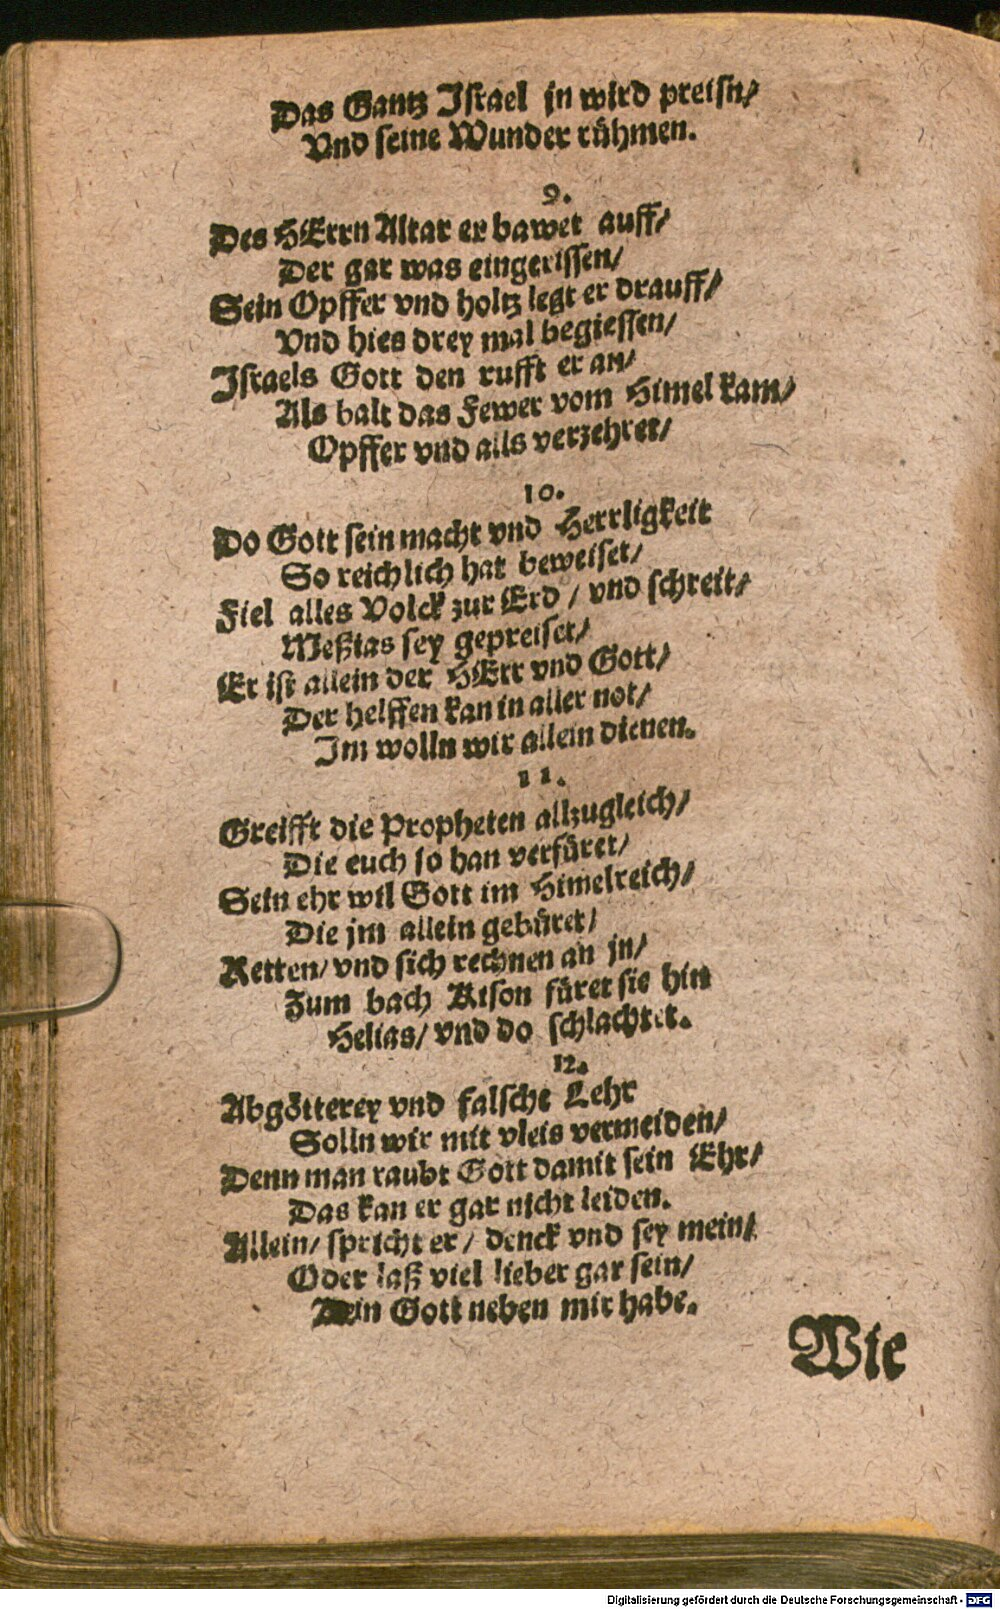 Das Gantz Israel jn wird preisn/
Vnd seine Wunder rühmen.
9.
Des HErrn Altar er bawet auff/
Der gar was eingerissen/
Sein Opffer vnd holtz legt er drauff/
Vnd hies drey mal begiessen/
Israels Gott den rufft er an/
Als balt das Fewer vom Himel kam/
Opffer vnd alls verzehret/
10.
Do Gott sein macht vnd Herrligkeit
So reichlich hat beweiset/
Fiel alles Volck zur Erd / vnd schreit/
Meßias sey gepreiset/
Er ist allein der HErr vnd Gott/
Der helffen kan in aller not/
Im wolln wir allein dienen.
11.
Greifft die Propheten allzugleich/
Die euch so han verfüret/
Sein ehr wil Gott im Himelreich/
Die jm allein gebüret/
Retten/ vnd sich rechnen an jn/
Zum bach Kison füret sie hin
Helias/ vnd do schlachtet.
12.
Abgötterey vnd falsche Lehr
Solln wir mit vleis vermeiden/
Denn man raubt Gott damit sein Ehr/
Das kan er gar nicht leiden.
Allein/ spricht er/ denck vnd sey mein/
Oder laß viel lieber gar sein/
Kein Gott neben mir habe.
Wie
Digitalisierung gefördert durch die Deutsche Forschungsgemeinschaft - DFG